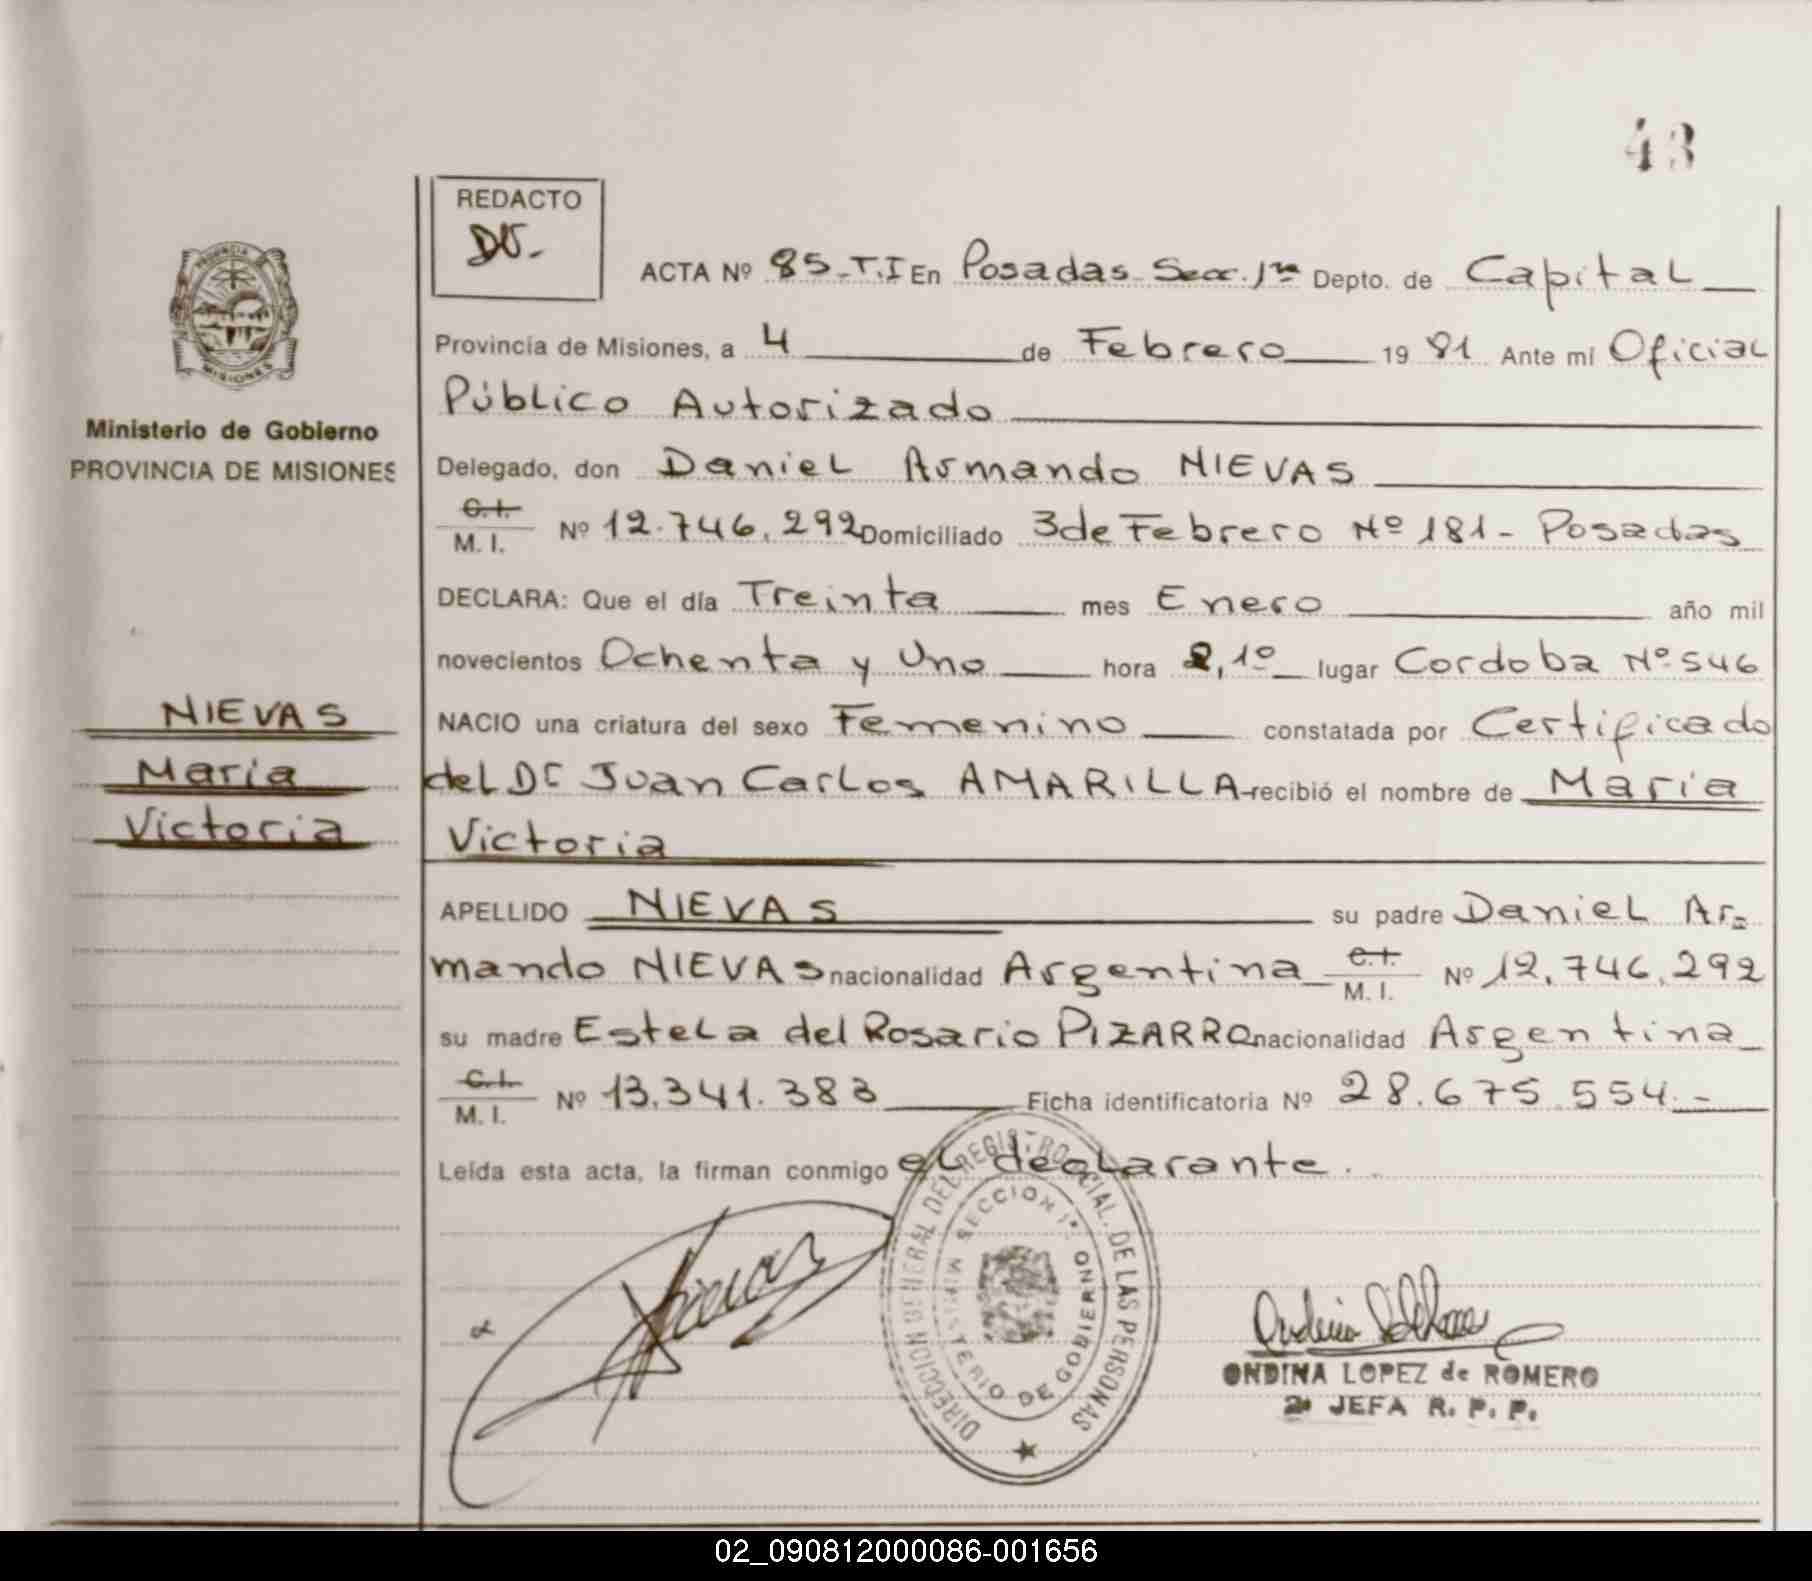 43
REDACTO
DV.-
ACTA Nº 85-T.I En Posadas Secc. 1ra Depto. de Capital
Provincia de Misiones, a 4 de Febrero 19 81 Ante mí Oficial
Público Autorizado
Delegado, don Daniel Armando NIEVAS
C.I. M. I. Nº 12.746.292 Domiciliado 3 de Febrero Nº 181 - Posadas
DECLARA: Que el día Treinta mes Enero año mil
novecientos Ochenta y Uno hora 2,10 lugar Cordoba Nº 546
NACIO una criatura del sexo Femenino constatada por Certificado
del Dr Juan Carlos AMARILLA recibió el nombre de Maria
Victoria
APELLIDO NIEVAS su padre Daniel Ar=
mando NIEVAS nacionalidad Argentina C.I. M. I. Nº 12.746.292
su madre Estela del Rosario PIZARRO nacionalidad Argentina
C.I. M. I. Nº 13.341.383 Ficha identificatoria Nº 28.675.554.-
Leída esta acta, la firman conmigo el declarante.
PROVINCIA
MISIONES
Ministerio de Gobierno
PROVINCIA DE MISIONES
NIEVAS
Maria
Victoria
DIRECCION GENERAL DEL REGISTRO PCIAL. DE LAS PERSONAS
SECCION 1ª
MINISTERIO DE GOBIERNO
ONDINA LOPEZ de ROMERO
2ª JEFA R. P. P.
02_090812000086-001656